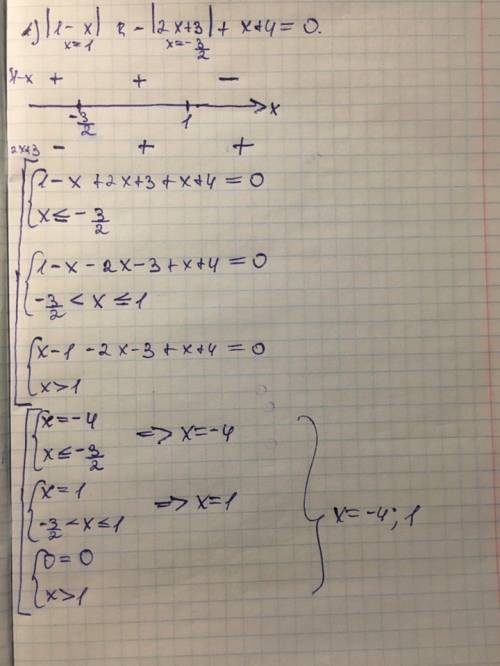 |1-x| - |2x+3| + x+4 = 0.
x=1 x=-3/2
1-x + + -
-3/2 1 x
2x+3 - + +
1-x+2x+3+x+4=0
x≤-3/2
1-x-2x-3+x+4=0
-3/2<x≤1
x-1-2x-3+x+4=0
x>1
x=-4
x≤-3/2
=> x=-4
x=1
-3/2<x≤1
=> x=1
0=0
x>1
x=-4; 1